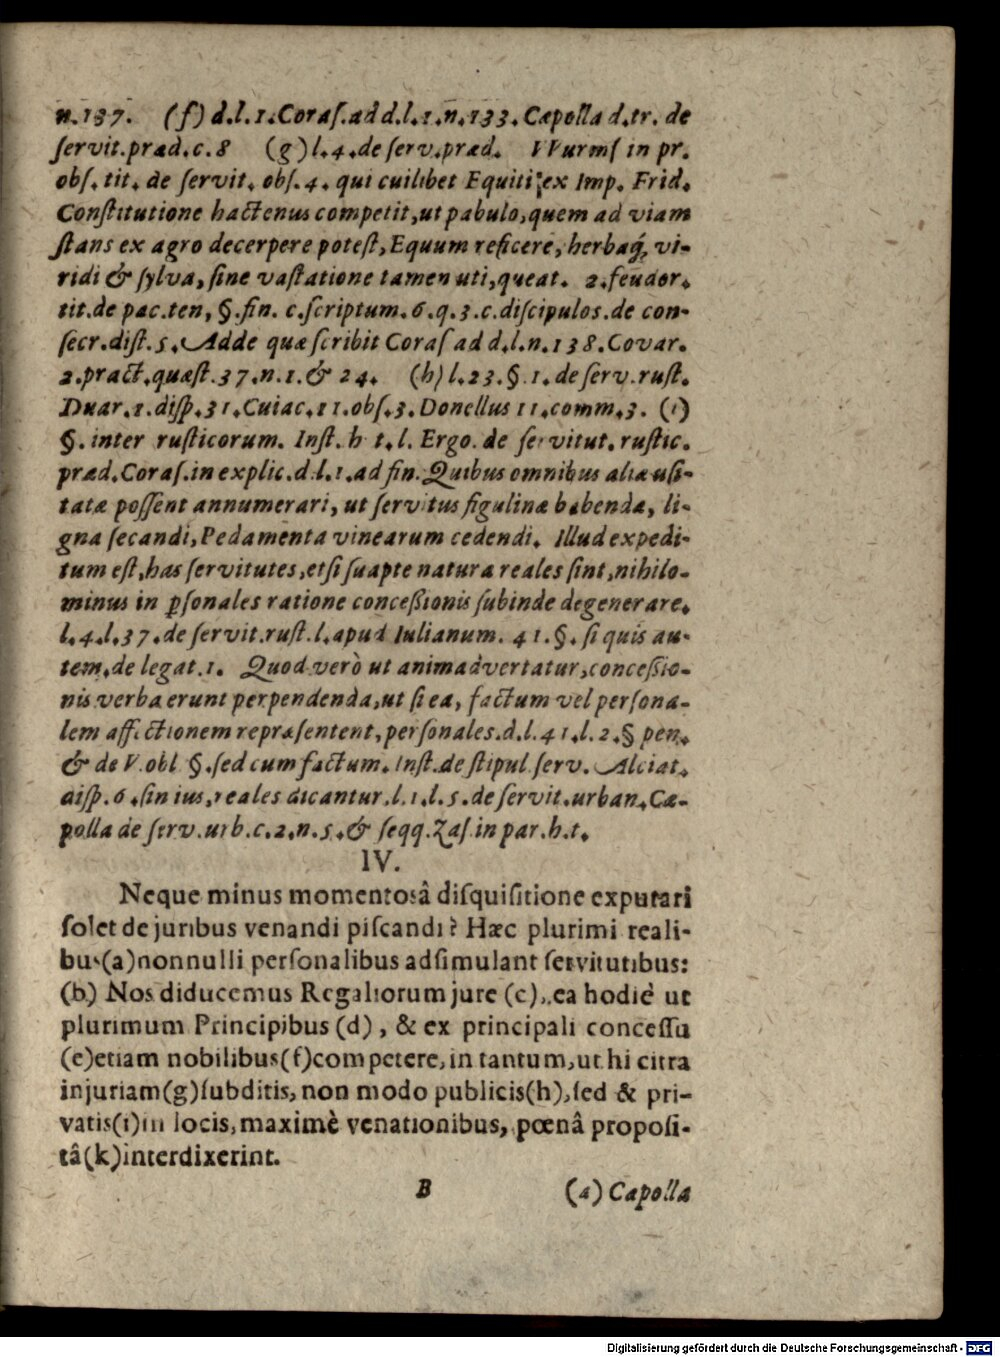 n.137. (f) d.l.1.Coraſ.ad d.l.1.n.133.Cæpolla d.tr. de
ſervit.præd.c.8 (g) l.4.de ſerv.præd. VVurmſ in pr.
obſ. tit. de ſervit. obſ.4. qui cuilibet Equiti ex Imp. Frid.
Conſtitutione hactenus competit, ut pabulo, quem ad viam
ſtans ex agro decerpere poteſt, Equum reficere, herbaq́; vi-
ridi & ſylva, ſine vaſtatione tamen uti, queat. 2.feudor.
tit.de pac.ten, §.fin. c.ſcriptum. 6.q.3.c.diſcipulos.de con-
ſecr.diſt.5. Adde quæ ſcribit Coraſ ad d.l.n.138.Covar.
2.pract.quæſt.37.n.1.& 24. (h) l.23.§.1. de ſerv.ruſt.
Duar.1.diſp.31.Cuiac.11.obſ.3.Donellus 11.comm.3. (i)
§. inter ruſticorum. Inſt. h t.l. Ergo. de ſervitut. ruſtic.
præd.Coraſ.in explic.d.l.1.ad fin. Quibus omnibus aliæ uſi-
tatæ poſſent annumerari, ut ſervitus figulinæ habendæ, li-
gna ſecandi, Pedamenta vinearum cedendi. Illud expedi-
tum eſt, has ſervitutes, etſi ſuapte natura reales ſint, nihilo-
minus in p̱ſonales ratione conceßionis ſubinde degenerare.
l.4.l.37.de ſervit.ruſt.l.apud Iulianum. 41.§. ſi quis au-
tem.de legat.1. Quod verò ut animadvertatur, conceßio-
nis verba erunt perpendenda, ut ſi ea, factum vel perſona-
lem affectionem repræſentent, perſonales.d.l.41.l.2.§ pen.
& de V.obl §.ſed cum factum. Inſt.de ſtipul ſerv. Alciat.
diſp.6.ſin ius, reales dicantur.l.1.l.5.de ſervit.urban.Cæ-
polla de ſerv.urb.c.2.n.5.& ſeqq.Zaſ.in par.h.t.
IV.
Neque minus momentosâ diſquiſitione exputari
ſolet de juribus venandi piſcandi? Hæc plurimi reali-
bus(a)nonnulli perſonalibus adſimulant ſervitutibus:
(b) Nos diducemus Regaliorum jure (c), ea hodiè ut
plurimum Principibus (d), & ex principali conceſſu
(e)etiam nobilibus(f)competere, in tantum, ut hi citra
injuriam(g)ſubditis, non modo publicis(h), ſed & pri-
vatis(i)in locis, maximè venationibus, pœnâ propoſi-
tâ(k)interdixerint.
B (a) Cæpolla
Digitalisierung gefördert durch die Deutsche Forschungsgemeinschaft - DFG